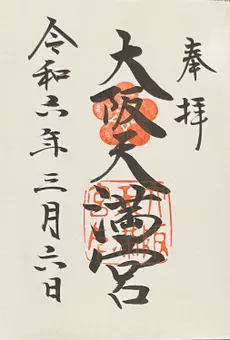 奉拝
大阪天満宮
令和六年三月六日